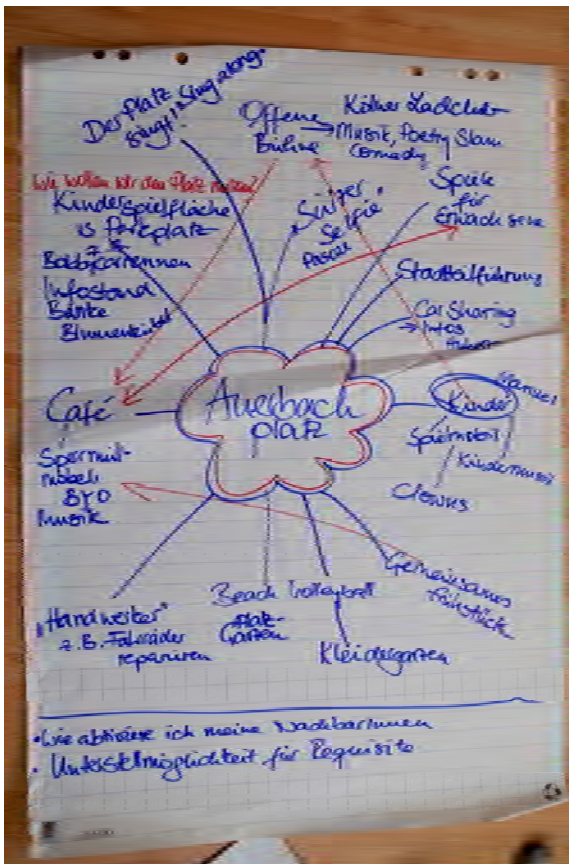 Der Platz
singt "Sing along"
Offene
Bühne
Kölner
Musik, Poetry Slam
Comedy
Wie wollen wir den Platz nutzen?
Kinderspielfläche
is Parkplatz
Bobbycarrennen
Infostand
Bänke
Blumenkübel
Selfie
Spiele
für
Erwachsene
Stadtteilführung
Car Sharing
→ Infos
Café
Auerbach
platz
Kinder
Manuel
Spielmobil
Kindermusik
Clowns
Sperrmüll-
möbel
BYO
Musik
Gemeinsames
Frühstück
"Handwerker"
z.B. Fahrräder
reparieren
Beach Volleyball
Garten
• Wie aktiviere ich meine NachbarInnen
• Unterstellmöglichkeit für Requisite